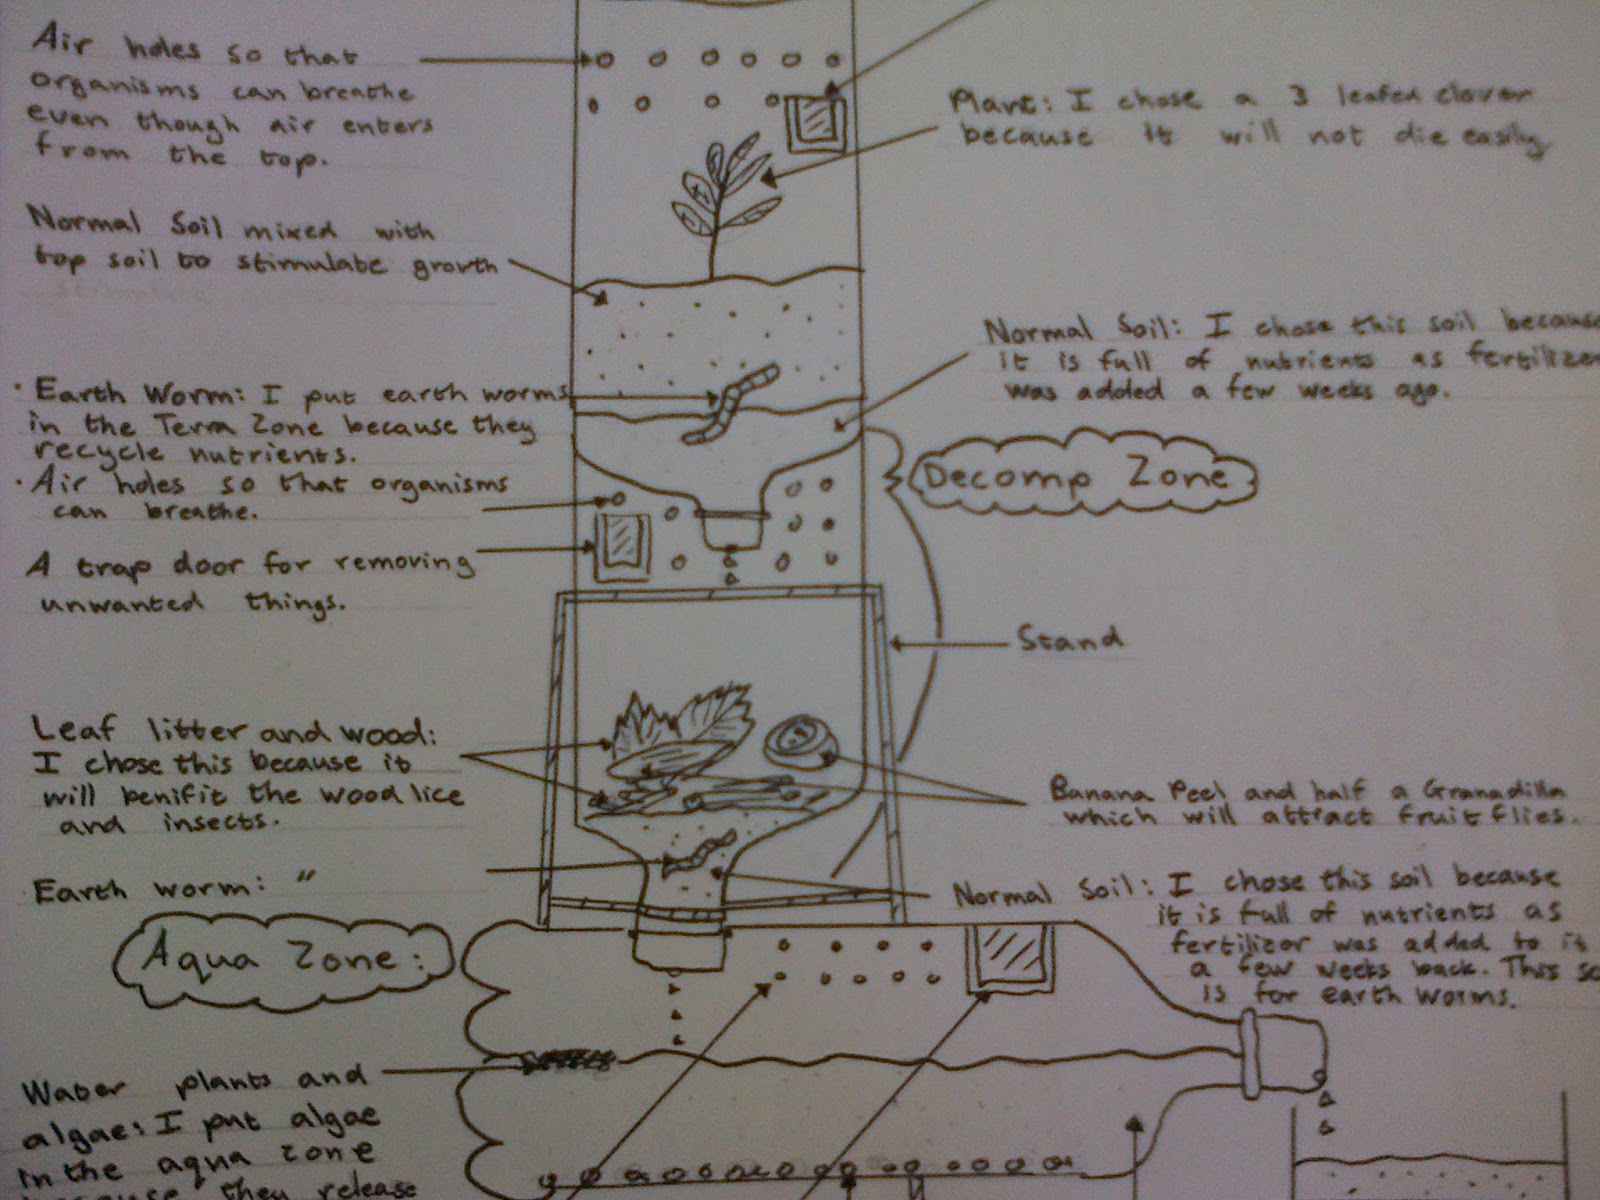 Air holes so that
organisms can breathe
even though air enters
from the top.
Plant: I chose a 3 leafed clover
because it will not die easily
Normal Soil mixed with
top soil to stimulate growth
Normal Soil: I chose this soil because
it is full of nutrients as fertilizer
was added a few weeks ago.
· Earth Worm: I put earth worms
in the Terra Zone because they
recycle nutrients.
· Air holes so that organisms
can breathe.
Decomp Zone
A trap door for removing
unwanted things.
Stand
Leaf litter and wood:
I chose this because it
will benifit the wood lice
and insects.
Banana Peel and half a Granadilla
which will attract fruit flies.
Earth worm: "
Normal Soil: I chose this soil because
it is full of nutrients as
fertilizer was added to it
a few weeks back. This so
is for earth worms.
Aqua Zone:
Water plants and
algae: I put algae
in the aqua zone
because they release